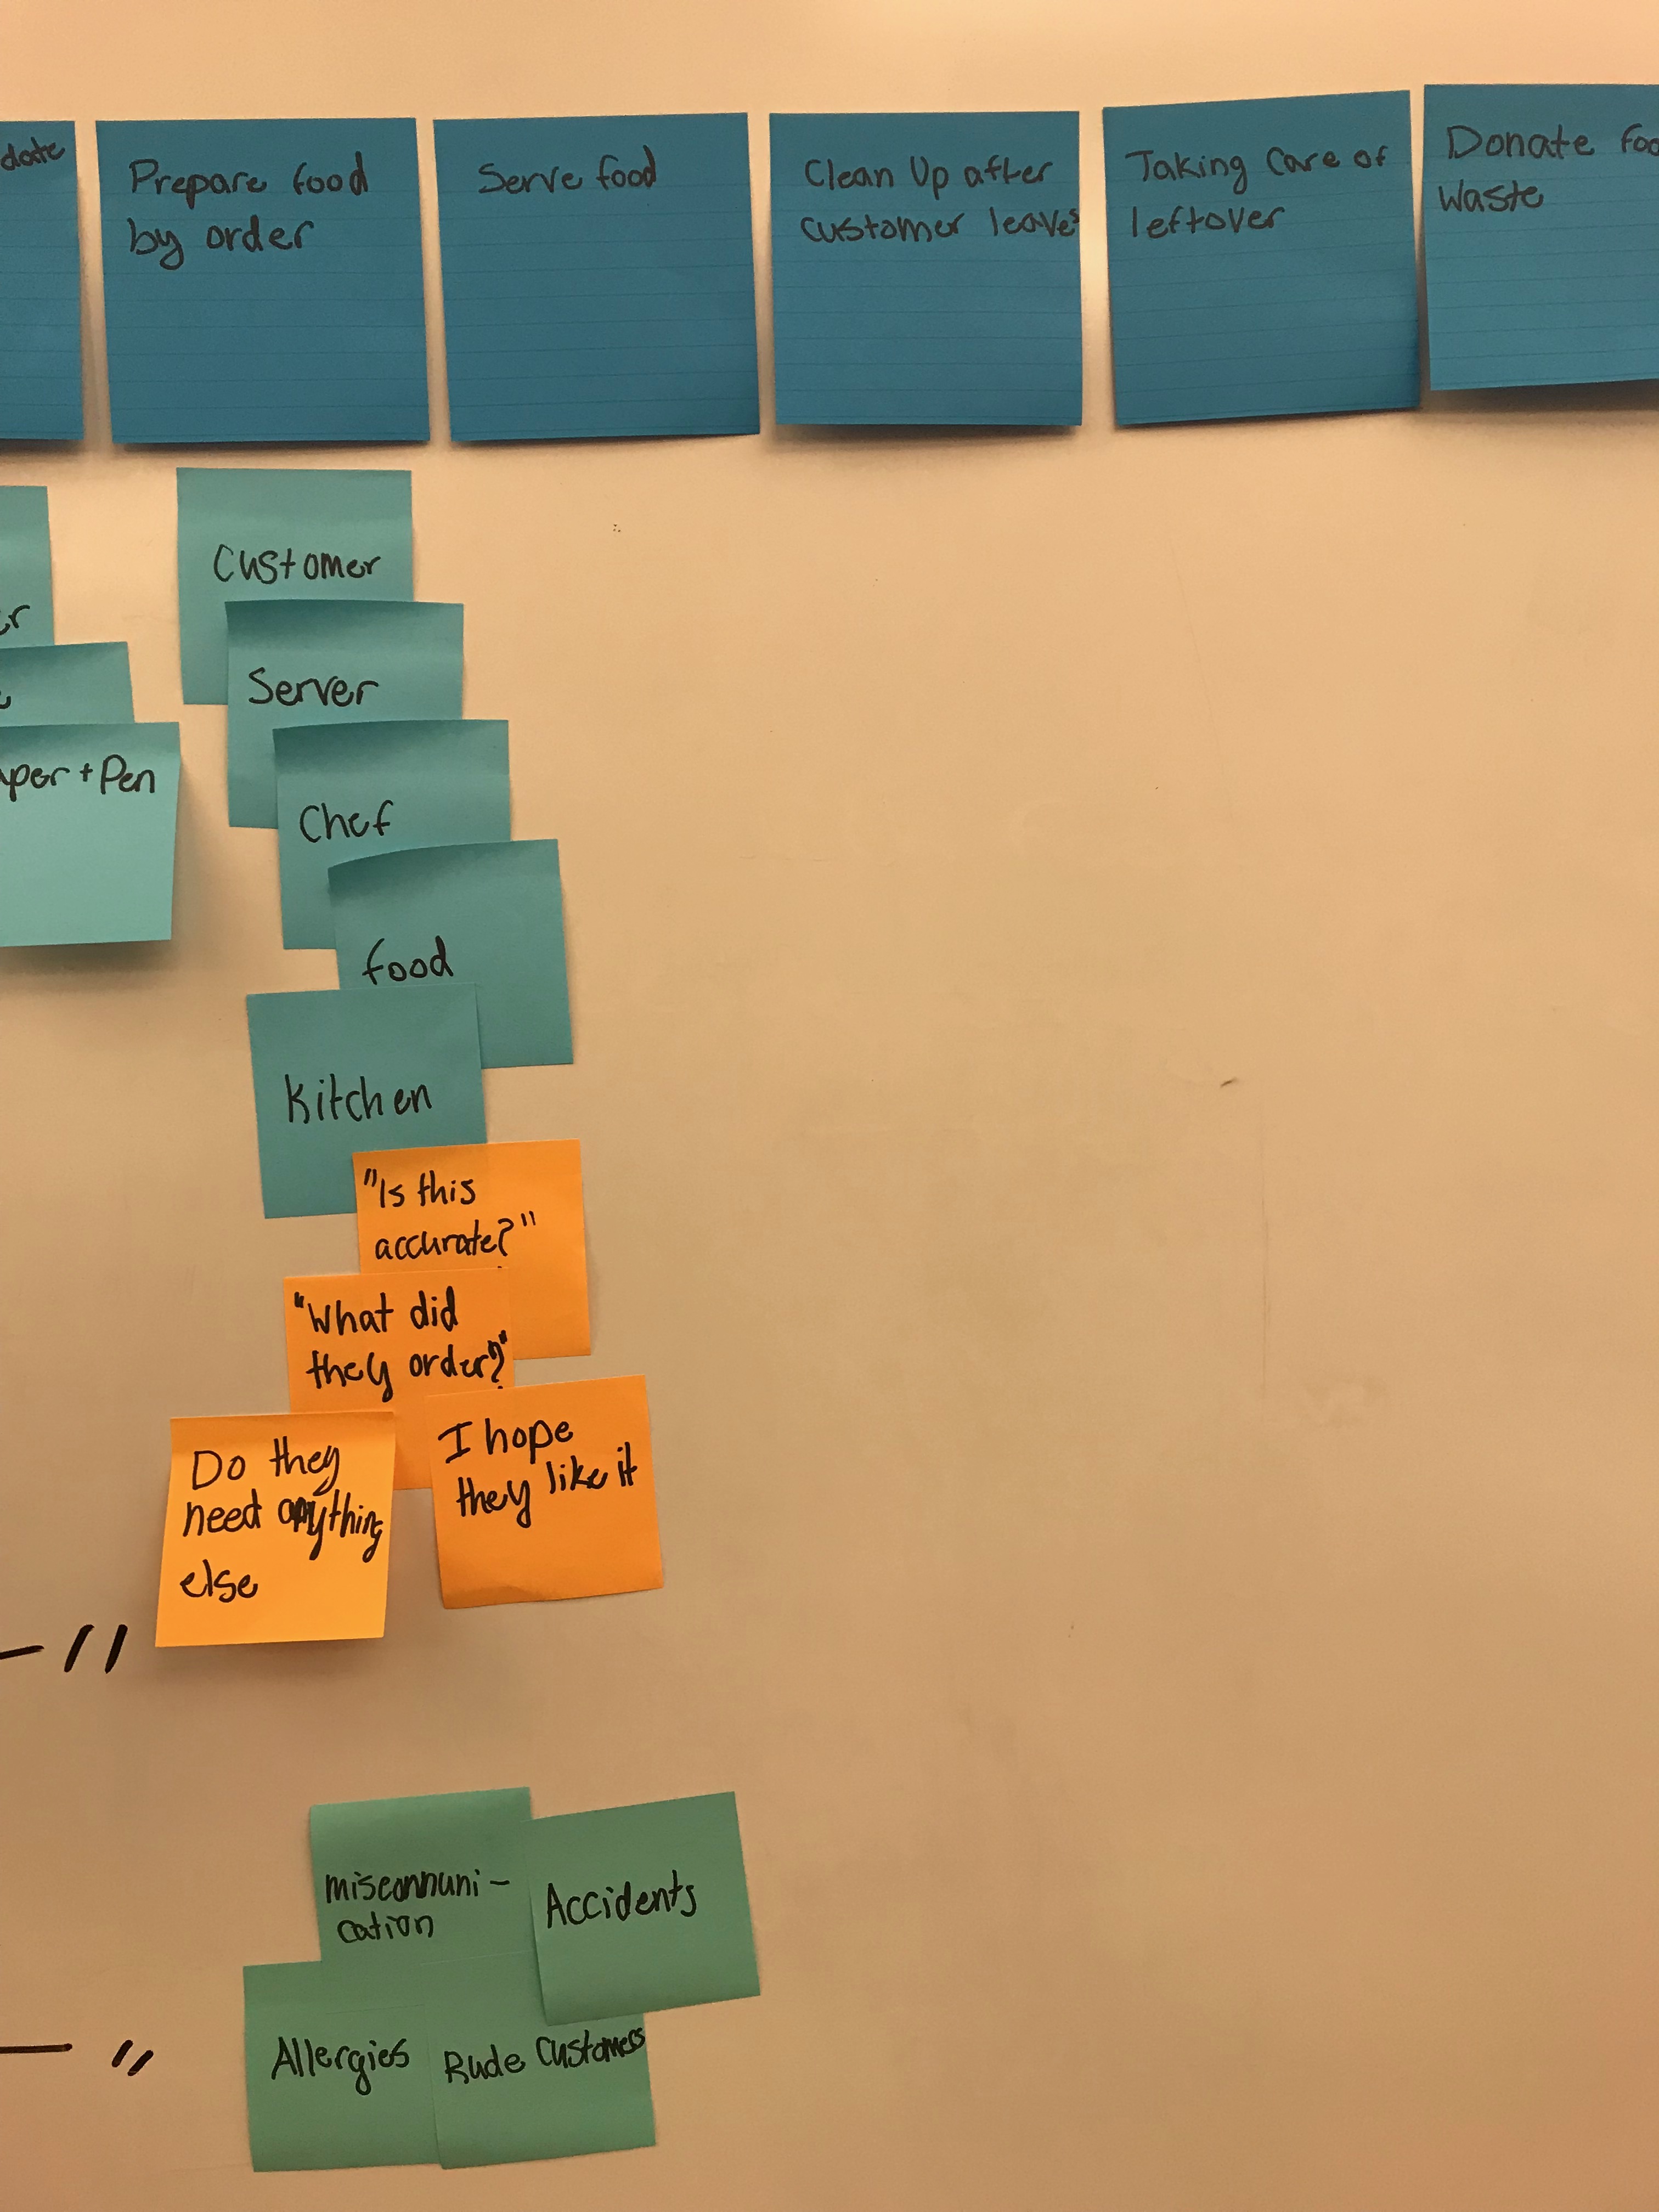 date
Prepare food
by order
Serve food
Clean Up after
customer leaves
Taking Care of
leftover
Donate foo
Waste
er
Customer
Server
per + Pen
Chef
food
Kitchen
"Is this
accurate?"
"What did
they order?"
Do they
need anything
else
I hope
they like it
— //
miscommuni-
cation
Accidents
Allergies
Rude Customers
— //